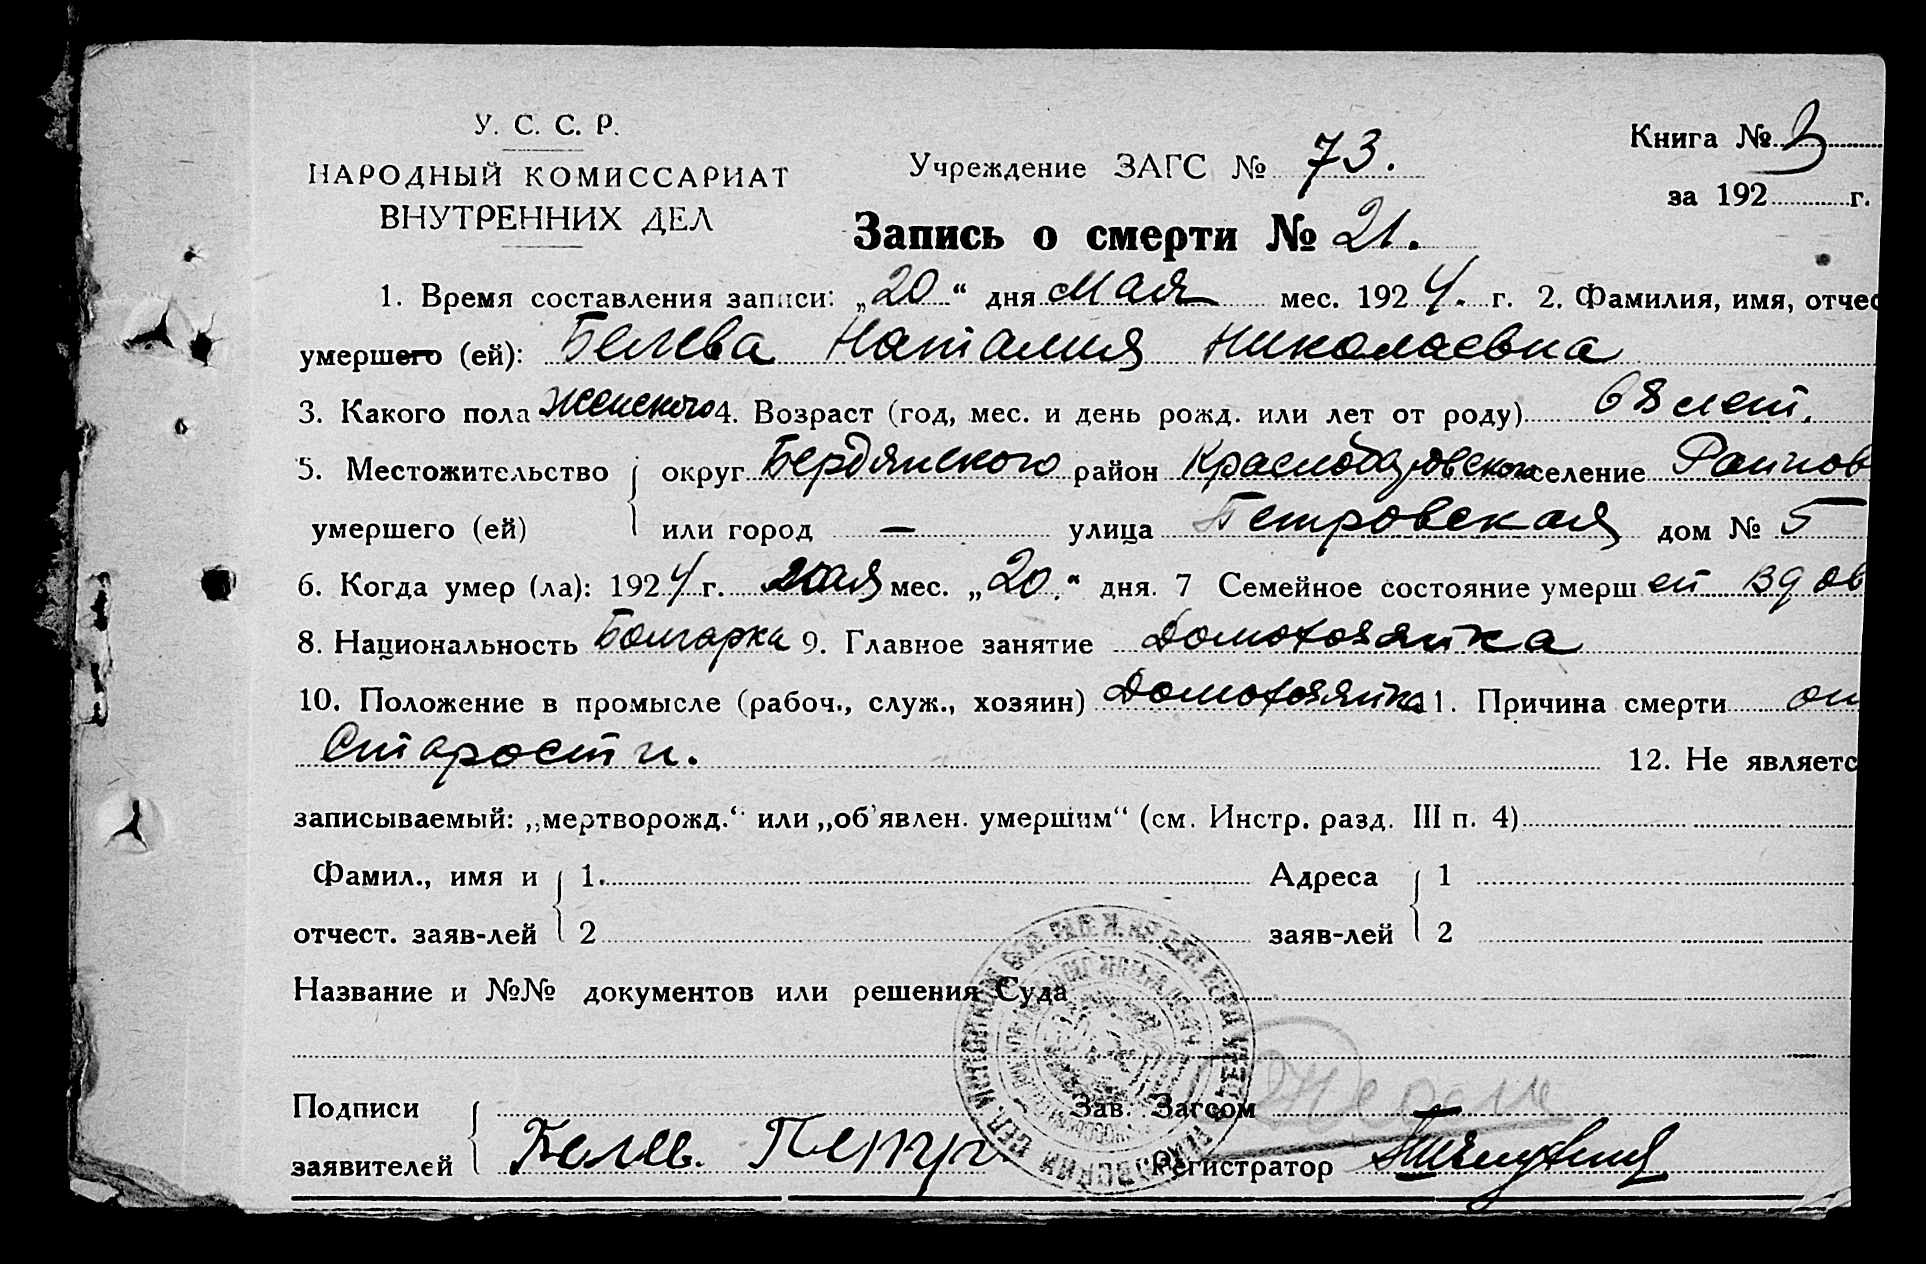 У. С. С. Р.
НАРОДНЫЙ КОМИССАРИАТ
ВНУТРЕННИХ ДЕЛ
Учреждение ЗАГС № 73.
Книга № 3
за 192 г.
Запись о смерти № 21.
1. Время составления записи: „20“ дня Мая мес. 1924. г. 2. Фамилия, имя, отчес
умершего (ей): Белева Наталия Николаевна
3. Какого пола Женского 4. Возраст (год, мес. и день рожд. или лет от роду) 68 лет.
5. Местожительство округ Бердянского район селение
умершего (ей) или город — улица Петровская дом № 5
6. Когда умер (ла): 1924 г. мая мес. „20.“ дня. 7 Семейное состояние умерш ей вдов
8. Национальность Болгарка 9. Главное занятие Домохозяйка
10. Положение в промысле (рабоч., служ., хозяин) Домохозяйка 11. Причина смерти от
Старости.
12. Не являетс
записываемый: „мертворожд.“ или „об'явлен. умершим“ (см. Инстр. разд. III п. 4)
Фамил., имя и 1. Адреса 1
отчест. заяв-лей 2 заяв-лей 2
Название и №№ документов или решения Суда
Подписи Зав. Загсом
заявителей Белев. Петр Регистратор